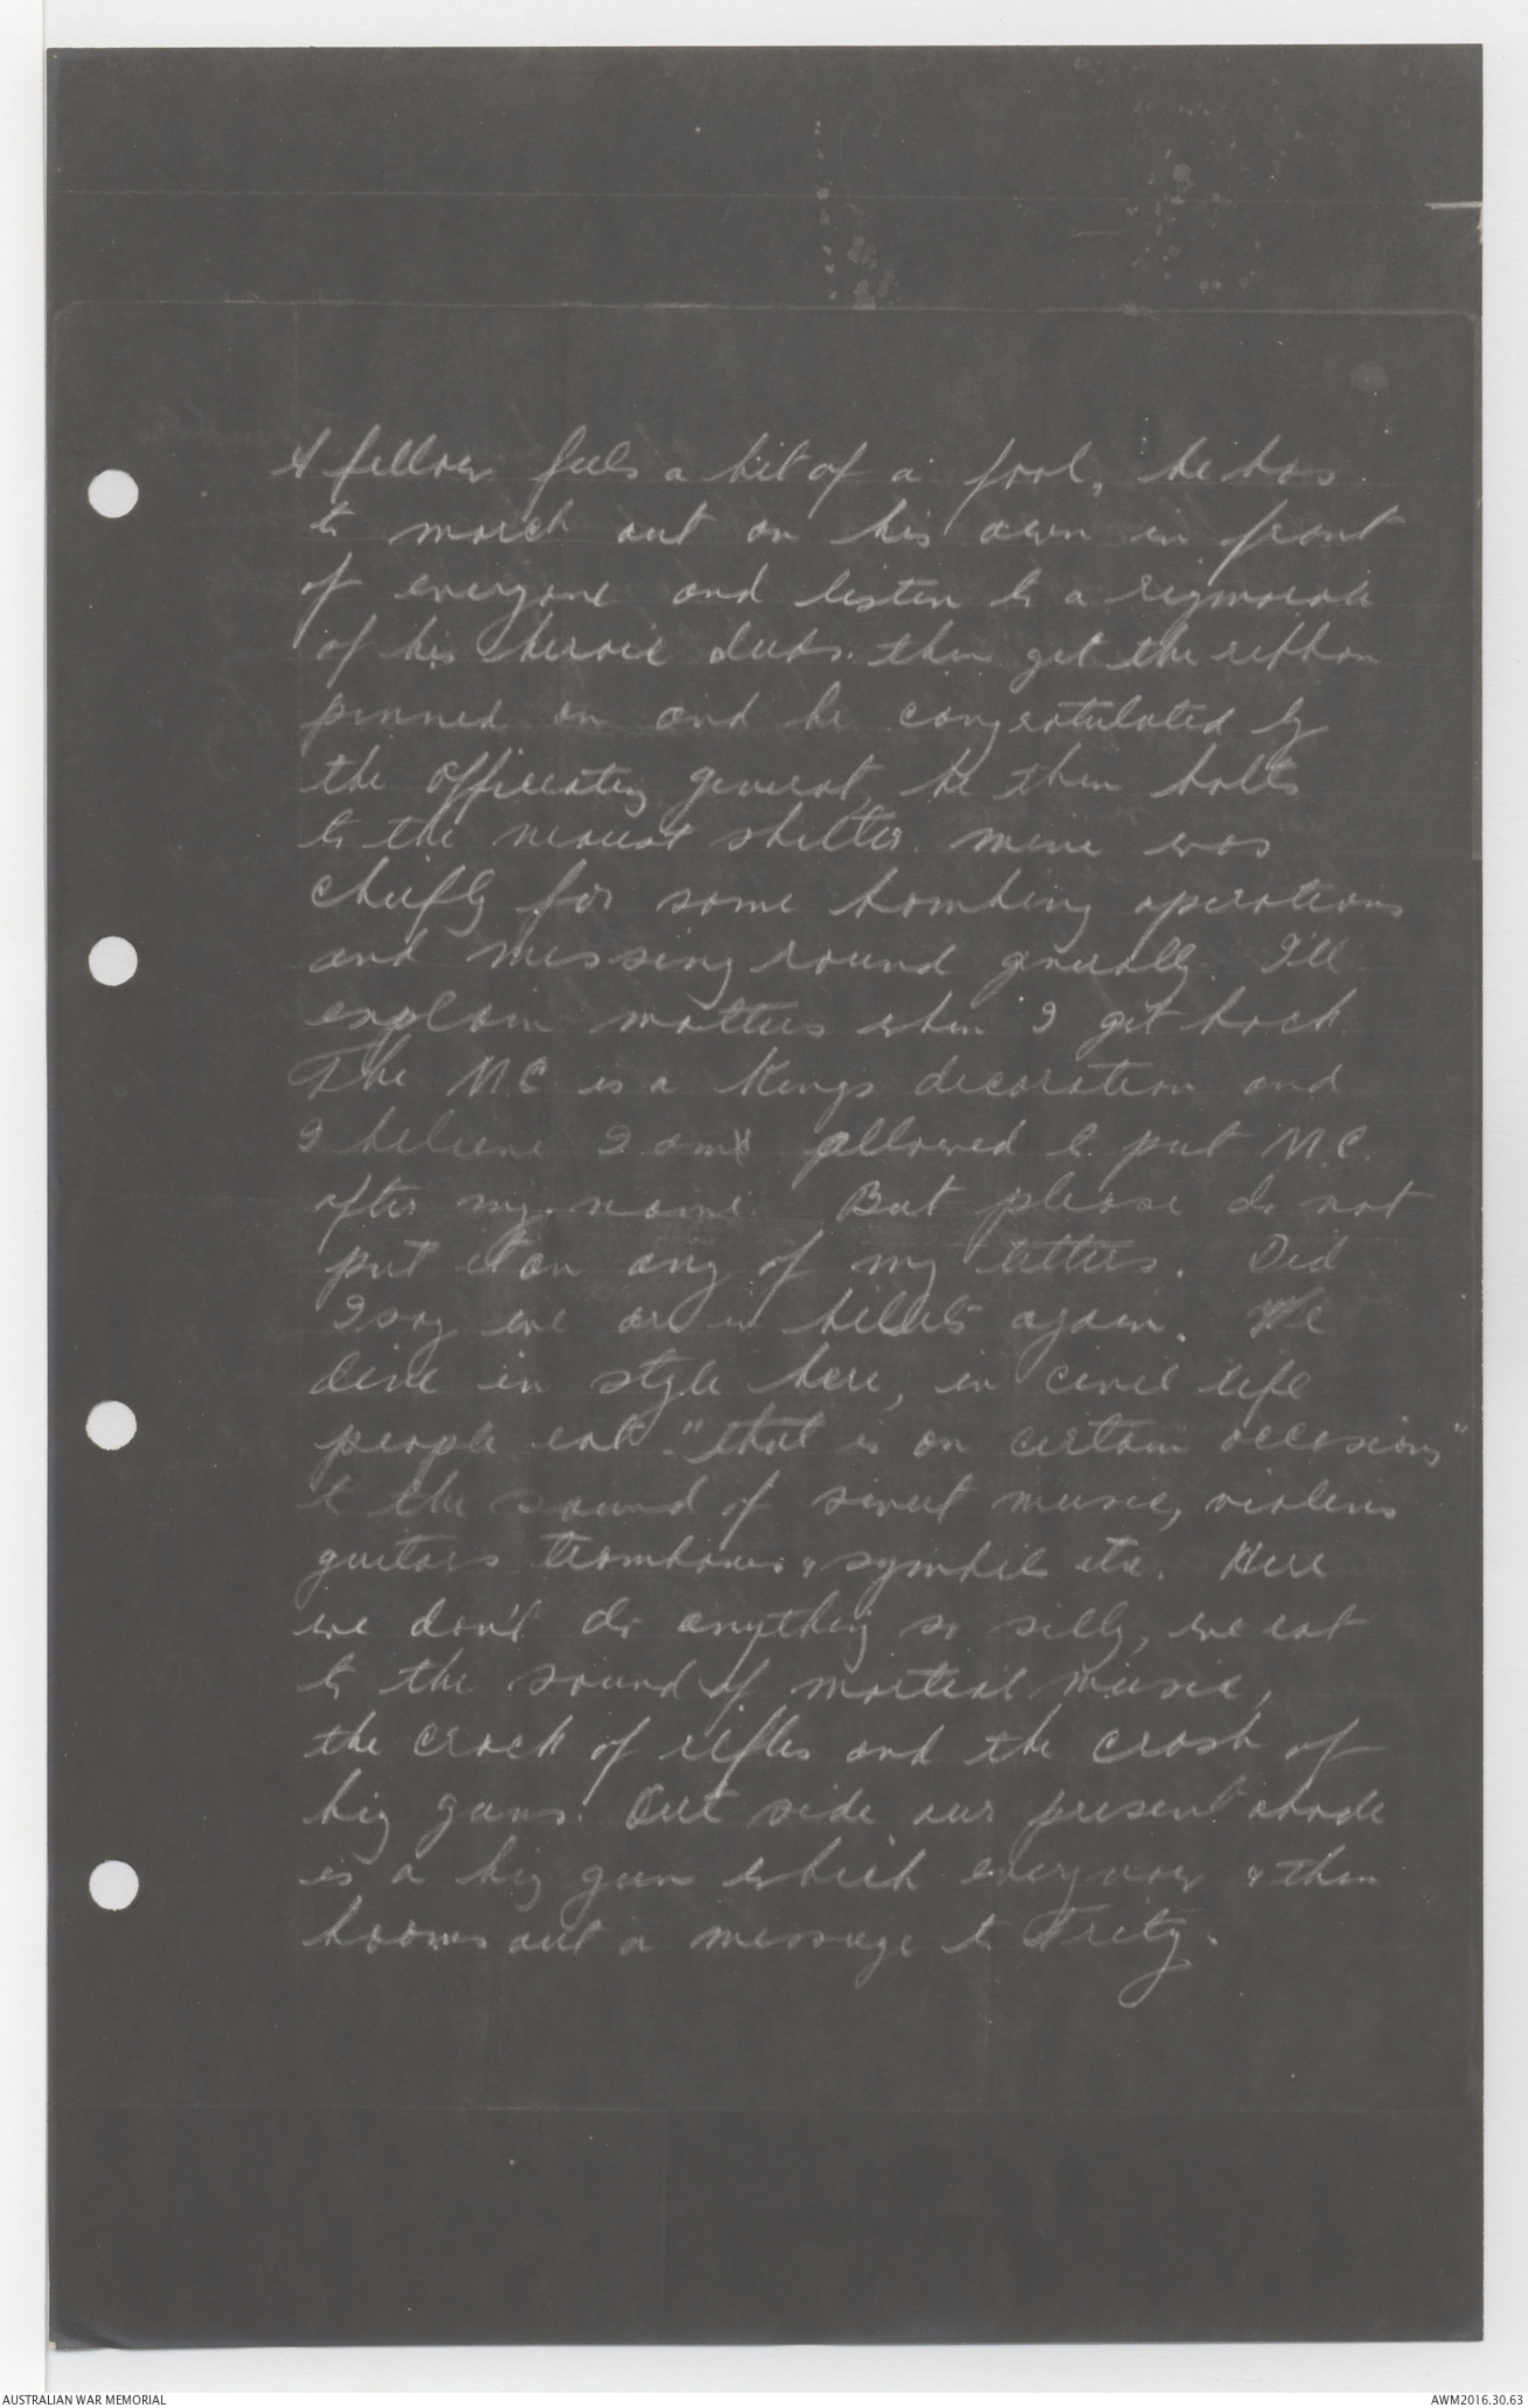 A fellow feels a bit of a fool, he has
to march out on his own in front
of everyone and listen to a rigmarole
of his heroic deeds. then get the ribbon
pinned on and be congratulated by
the officiating general, he then bolts
to the nearest shelter. mine was
chiefly for some bombing operations
and messing round generally. I'll
explain matters when I get back.
The M.C is a Kings decoration and
I believe I am allowed to put M.C.
after my name. But please do not
put it on any of my letters. Did
I say we are in billets again. We
dine in style here, in civil life
people eat "that is on certain occasions"
to the sound of sweet music, violins
guitars trombones & symbols etc. Here
we don't do anything so silly, we eat
to the sound of martial music,
the crack of rifles and the crash of
big guns. Out side our present abode
is a big gun which every now & then
booms out a message to Fritz.
AUSTRALIAN WAR MEMORIAL
AWM2016.30.63